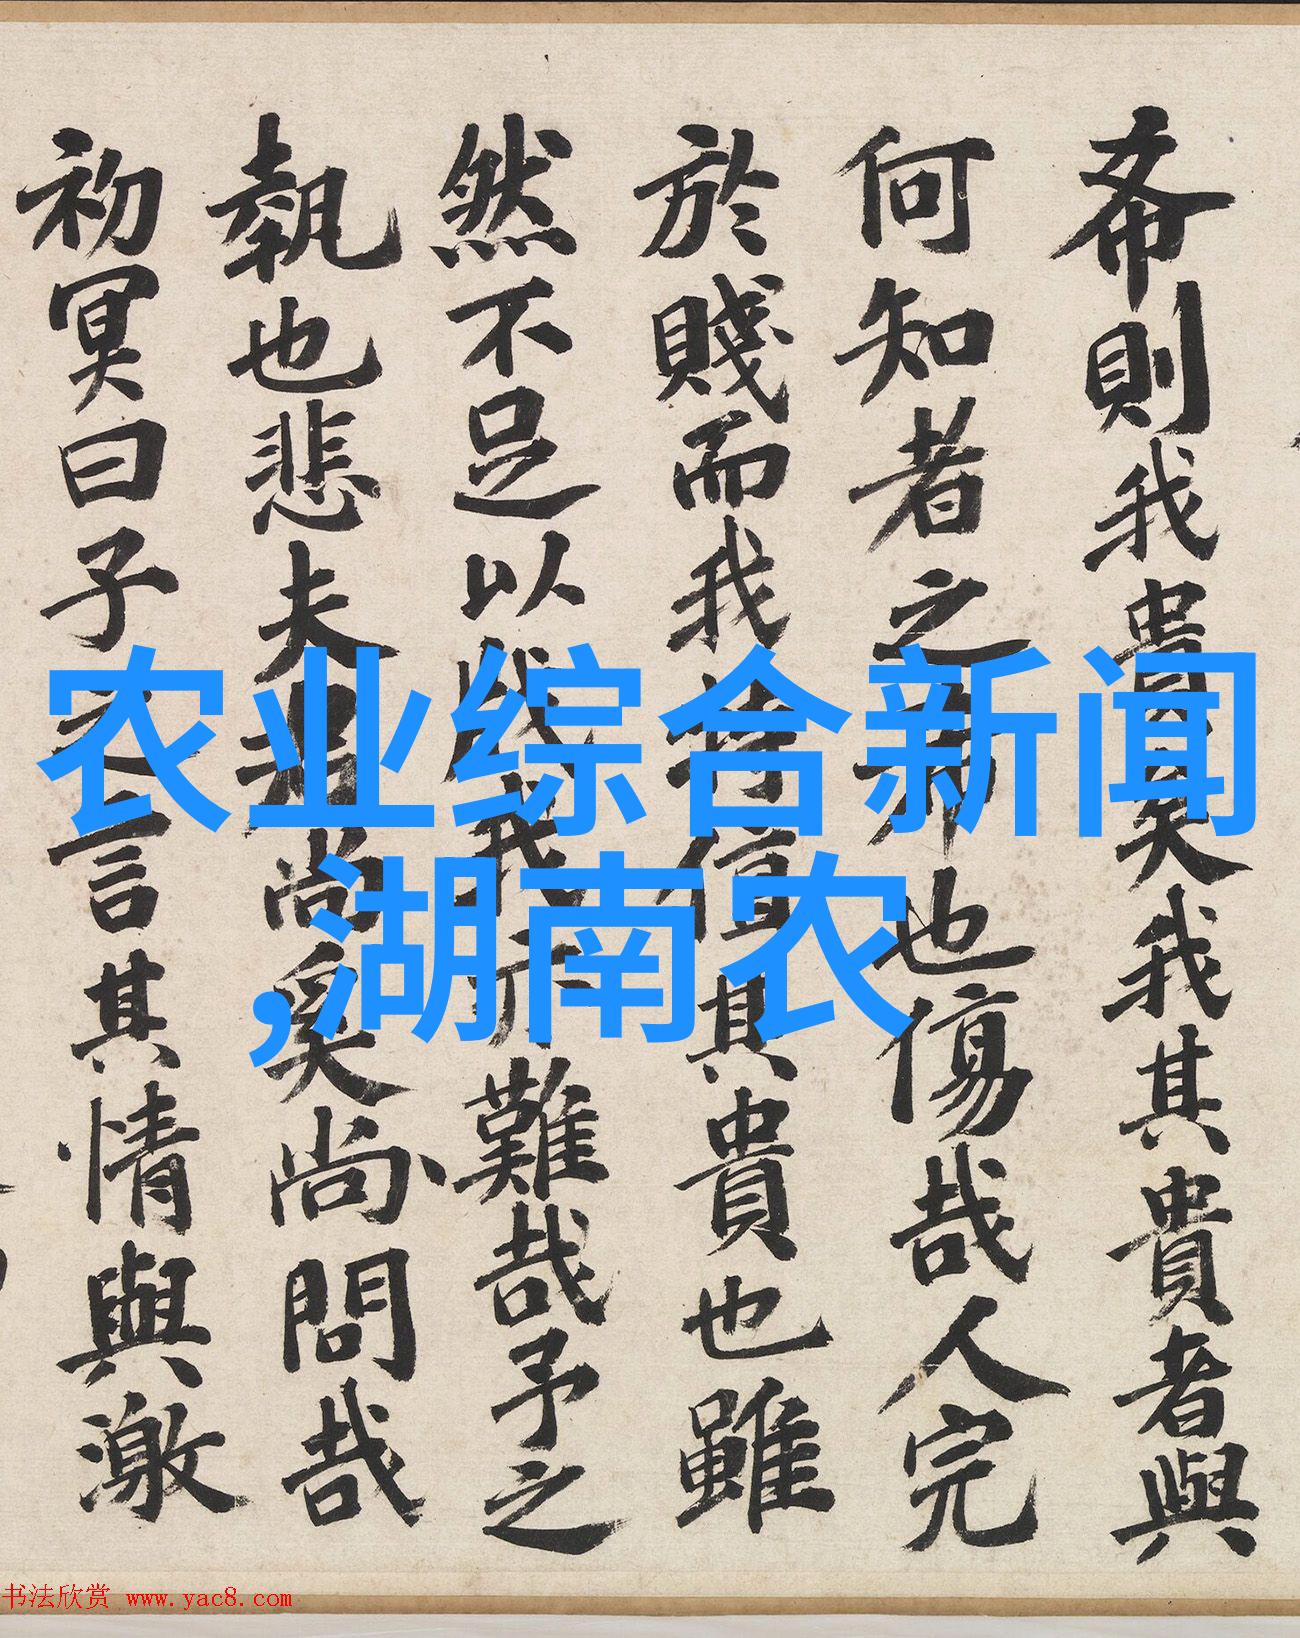 希則我貴矣我其貴者與
何知者之也傷哉人完
於賤而我其貴也雖
然不足以我難哉予之
執也悲夫尚奚尚問哉
初冥曰子之言其情與激
农业综合新闻
,湖南农
书法欣赏 www.yac8.com